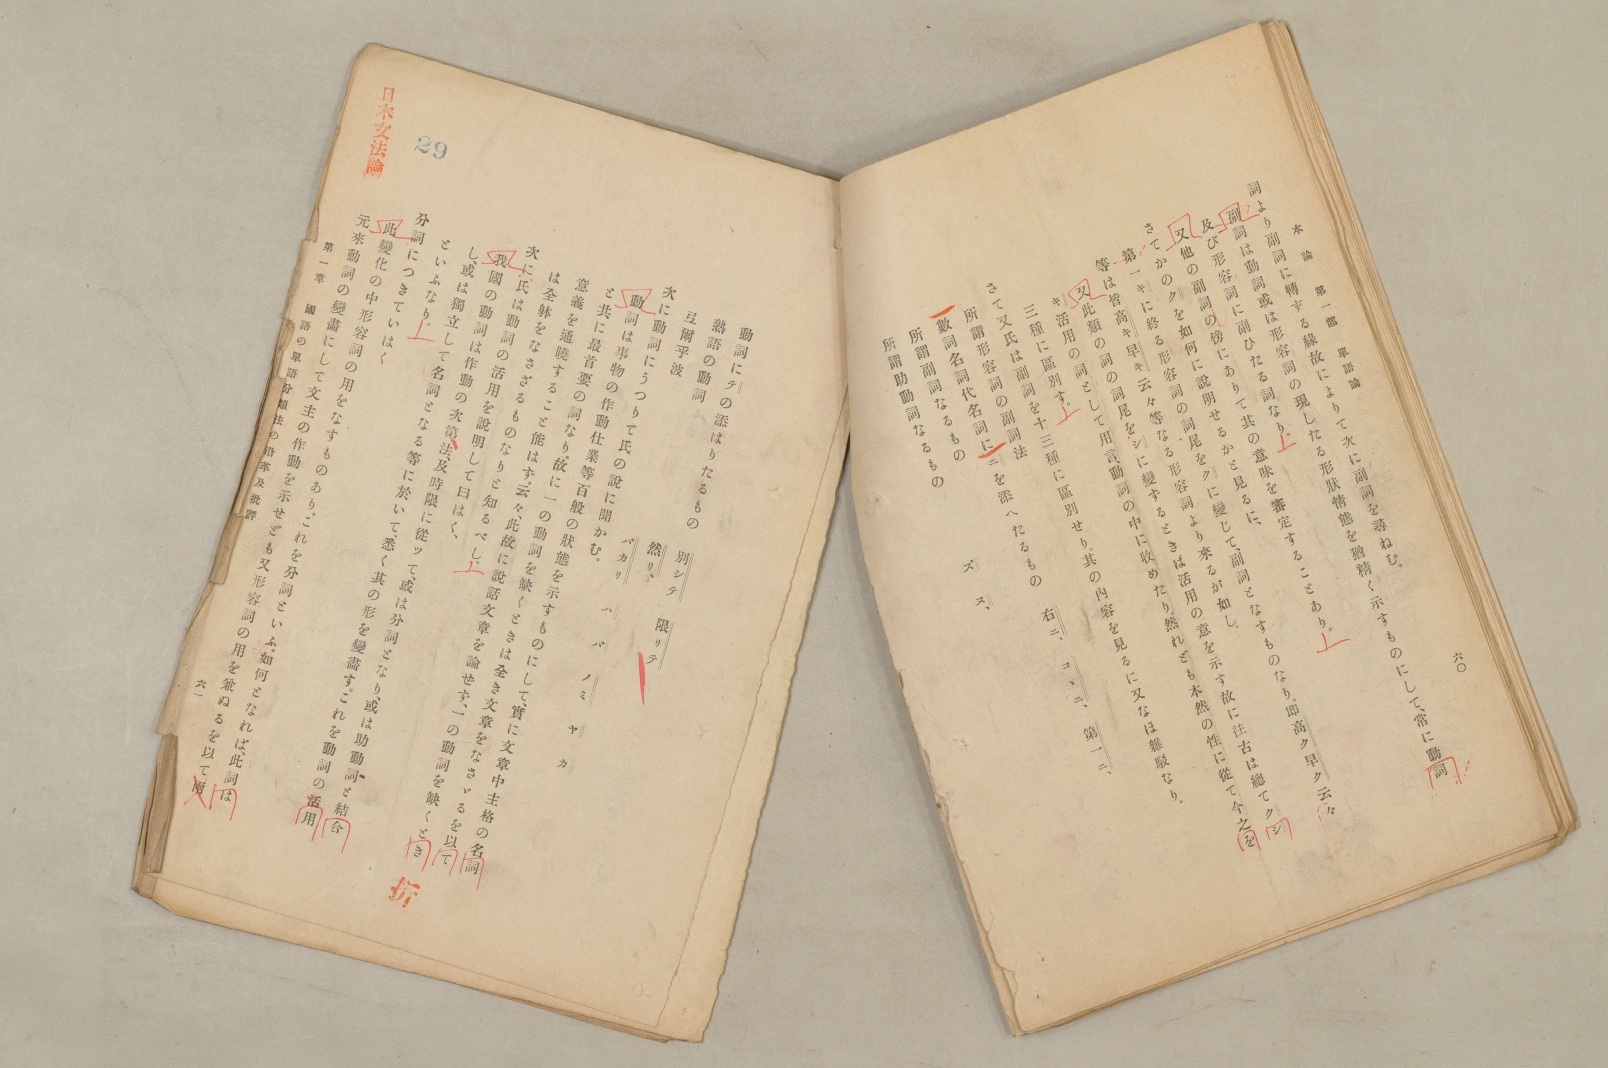 本論 第一部 單語論
六〇
詞より副詞に轉する緣故によりて次に副詞を尋ねむ。
副詞は動詞或は形容詞の現したる形狀情態を猶精く示すものにして、常に動詞
及び形容詞に副ひたる詞なり。
又他の副詞の傍にありて其の意味を審定することあり。
さてかのクを如何に說明せるかと見るに、
第一キに終る形容詞の詞尾をクに變じて、副詞となすものなり。卽高ク早ク云々
等は皆高キ早キ云々等なる形容詞より來るが如し。
又此類の詞の詞尾をシに變ずるときは活用の意を示す故に往古は總てクシ
キ活用の詞として用言動詞の中に收めたり。然れども本然の性に從て今之を
三種に區別す。
さて又氏は副詞を十三種に區別せり。其の內容を見るに又なほ雜駁なり。
所謂形容詞の副詞法
數詞名詞代名詞にニを添へたるもの 右ニ、コヽニ、第一ニ、
所謂副詞なるもの
所謂助動詞なるもの ズ ス、
動詞にテの添はりたるもの 別シテ 限リテ
熟語の動詞 然リ、
弖爾乎波 バカリ ハ バ ノミ ヤ カ
次に動詞にうつりて氏の說に聞かむ。
動詞は事物の作動仕業等百般の狀態を示すものにして、實に文章中主格の名詞
と共に最首要の詞なり。故に一の動詞を缺くときは全き文章をなさゞるを以て
意義を通曉すること能はず、云々、此故に說話文章を論せず、一の動詞を缺くとき
は全躰をなさざるものなりと知るべし。
次に氏は動詞の活用を說明して曰はく、
我國の動詞は作動の次第、法、及時限に從ッて、或は分詞となり、或は助動詞と結合
し、或は獨立して名詞となる等に於いて、悉く其の形を變盡す。これを動詞の活用
といふなり。
分詞につきていはく
此變化の中形容詞の用をなすものあり。これを分詞といふ。如何となれば、此詞は
元來動詞の變盡にして文主の作動を示せども又形容詞の用を兼ぬるを以て
第一章 國語の單語分類法の沿革及批評
六一
日本文法論
29
折